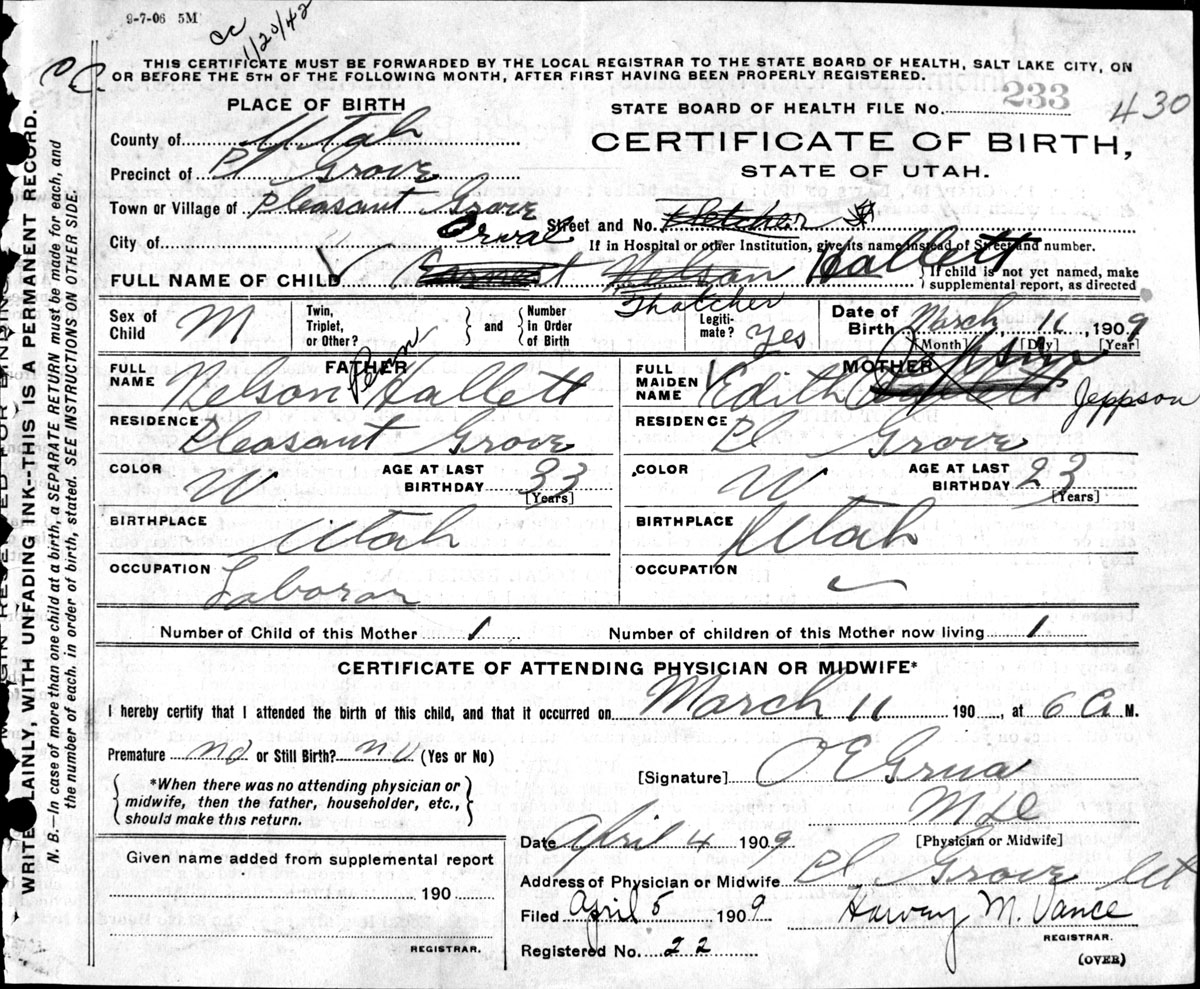 9-7-06 5M
CC
1/20/42
CC.
THIS CERTIFICATE MUST BE FORWARDED BY THE LOCAL REGISTRAR TO THE STATE BOARD OF HEALTH, SALT LAKE CITY, ON
OR BEFORE THE 5TH OF THE FOLLOWING MONTH, AFTER FIRST HAVING BEEN PROPERLY REGISTERED.
PLACE OF BIRTH
STATE BOARD OF HEALTH FILE No. 233
430
County of Utah
CERTIFICATE OF BIRTH,
STATE OF UTAH.
Precinct of Pl Grove
Town or Village of Pleasant Grove
Street and No.
City of
If in Hospital or other Institution, give its name instead of Street and number.
Orval
FULL NAME OF CHILD Earnest Nelson Hallett
Thatcher
If child is not yet named, make
supplemental report, as directed
Sex of Child M
Twin, Triplet, or Other?
and
Number in Order of Birth
Legiti-mate? Yes
Date of Birth March 11, 1909
[Month] [Day] [Year]
FATHER
FULL NAME Nelson Penn Hallett
RESIDENCE Pleasant Grove
COLOR W
AGE AT LAST BIRTHDAY 33
[Years]
BIRTHPLACE Utah
OCCUPATION Laboror
MOTHER
FULL MAIDEN NAME Edith Jeppson
RESIDENCE Pl Grove
COLOR W
AGE AT LAST BIRTHDAY 23
[Years]
BIRTHPLACE Utah
OCCUPATION
Number of Child of this Mother 1
Number of children of this Mother now living 1
CERTIFICATE OF ATTENDING PHYSICIAN OR MIDWIFE*
I hereby certify that I attended the birth of this child, and that it occurred on March 11 190, at 6 A. M.
Premature no or Still Birth? no (Yes or No)
[Signature] O E Grua
*When there was no attending physician or
midwife, then the father, householder, etc.,
should make this return.
M D
[Physician or Midwife]
Date April 4 1909
Given name added from supplemental report
190
REGISTRAR.
Address of Physician or Midwife Pl Grove Ut
Filed April 5 1909
Harvey M. Vance
REGISTRAR.
Registered No. 22
(OVER)
WRITE PLAINLY, WITH UNFADING INK--THIS IS A PERMANENT RECORD.
N. B.—In case of more than one child at a birth, a SEPARATE RETURN must be made for each, and
the number of each, in order of birth, stated. SEE INSTRUCTIONS ON OTHER SIDE.